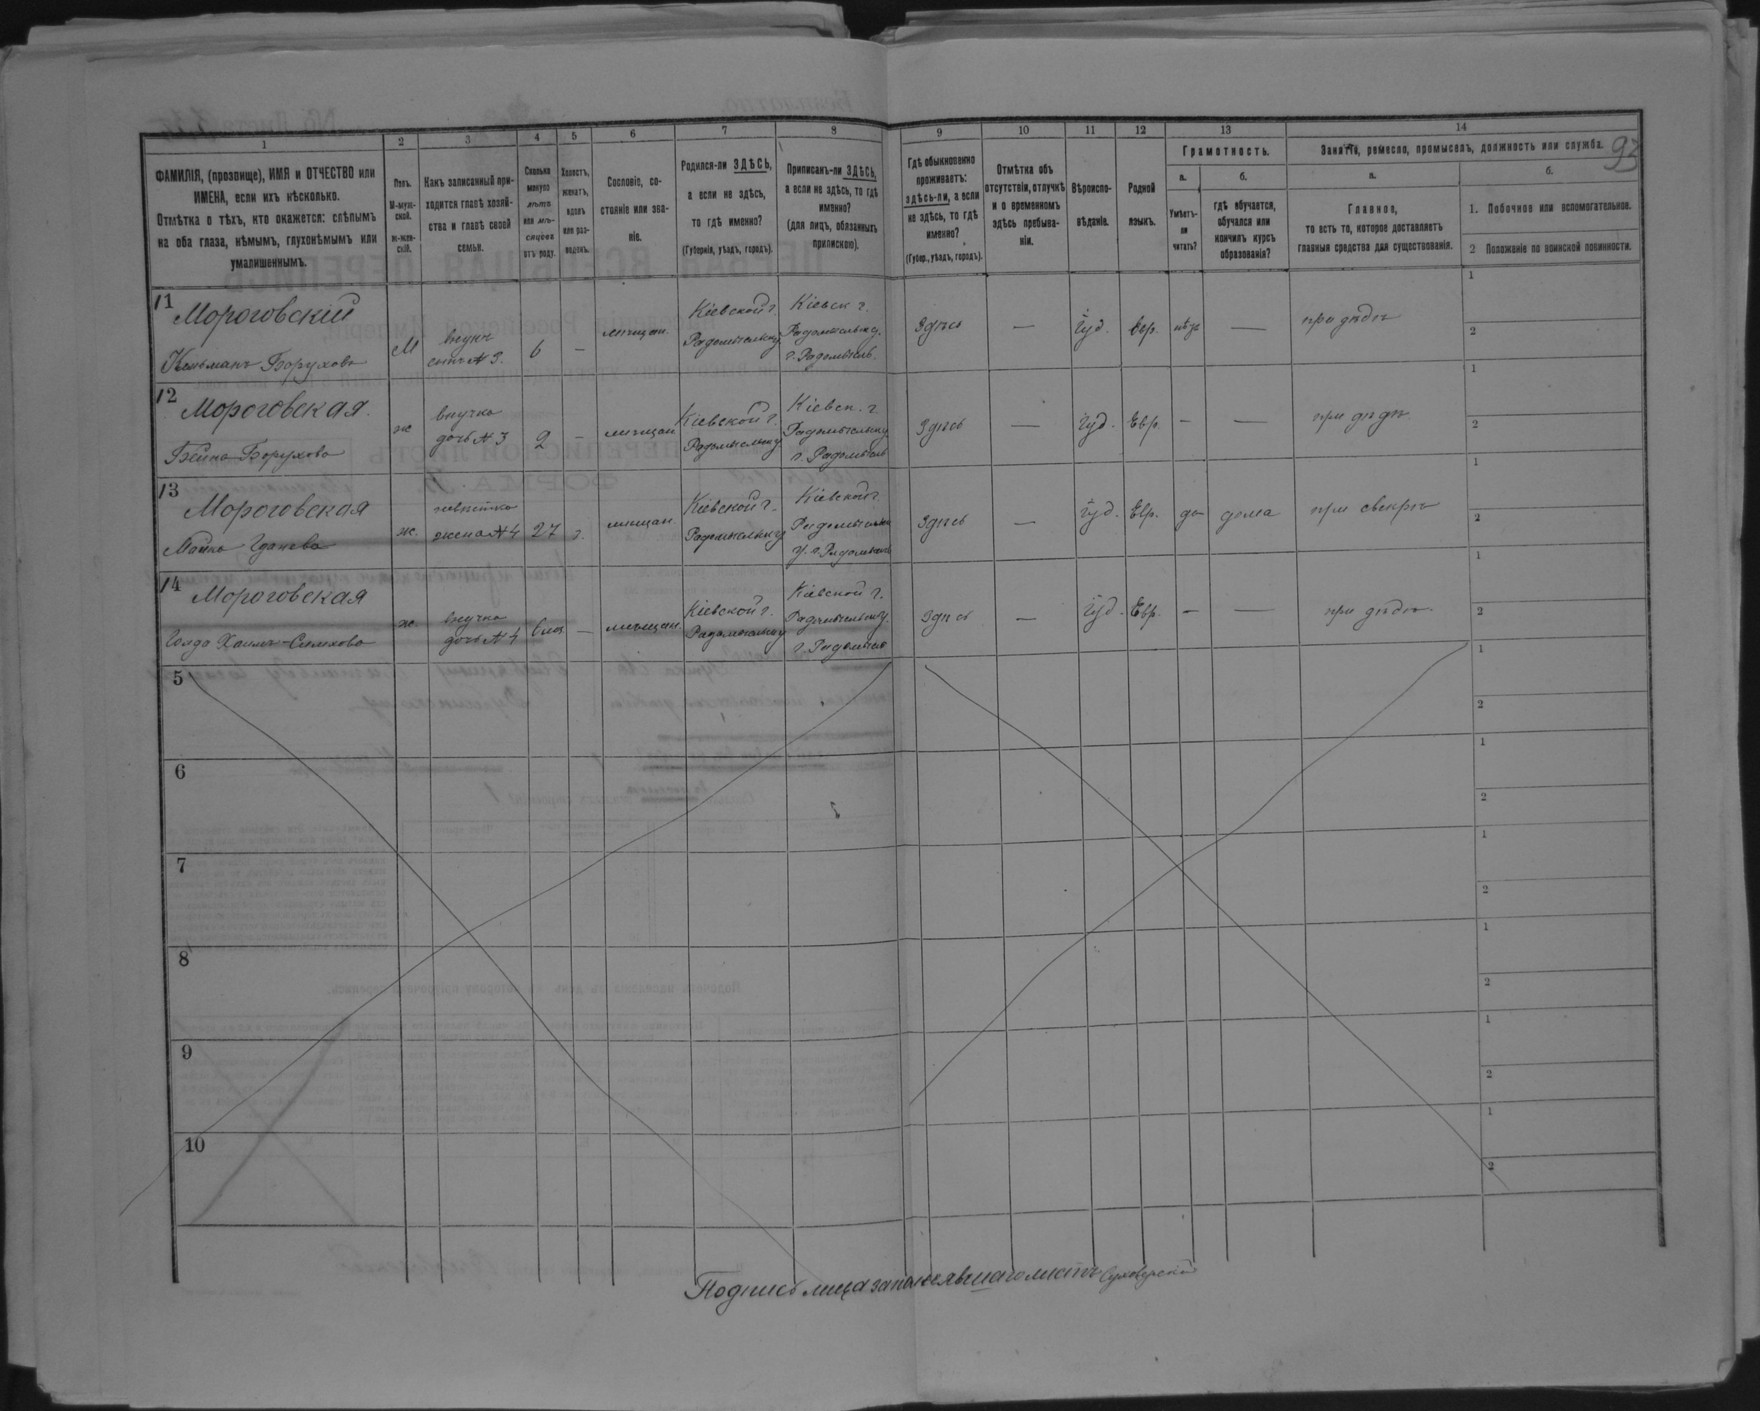 93
1
2
3
4
5
6
7
8
9
10
11
12
13
14
ФАМИЛІЯ, (прозвище), ИМЯ и ОТЧЕСТВО или
ИМЕНА, если ихъ нѣсколько.
Отмѣтка о тѣхъ, кто окажется: слѣпымъ
на оба глаза, нѣмымъ, глухонѣмымъ или
умалишеннымъ.
Полъ.
М-муж-
ской.
Ж-жен-
скій.
Какъ записанный при-
ходится главѣ хозяй-
ства и главѣ своей
семьи.
Сколько
минуло
лѣтъ
или мѣ-
сяцевъ
отъ роду.
Холостъ,
женатъ,
вдовъ
или раз-
веденъ.
Сословіе, со-
стояніе или зва-
ніе.
Родился-ли ЗДѢСЬ,
а если не здѣсь,
то гдѣ именно?
(Губернія, уѣздъ, городъ).
Приписанъ-ли ЗДѢСЬ,
а если не здѣсь, то гдѣ
именно?
(для лицъ, обязанныхъ
припискою).
Гдѣ обыкновенно
проживаетъ:
здѣсь-ли, а если
не здѣсь, то гдѣ
именно?
(Губер., уѣздъ, городъ).
Отмѣтка объ
отсутствіи, отлучкѣ
и о временномъ
здѣсь пребыва-
ніи.
Вѣроиспо-
вѣданіе.
Родной
языкъ.
Грамотность.
а.
Умѣетъ-
ли
читать?
б.
гдѣ обучается,
обучался или
кончилъ курсъ
образованія?
Занятіе, ремесло, промыселъ, должность или служба.
а.
Главное,
то есть то, которое доставляетъ
главныя средства для существованія.
б.
1. Побочное или вспомогательное.
2 Положеніе по воинской повинности.
11
Мороговскій
Борухов
М
внукъ
сынъ N 3.
6
—
мѣщан.
Кіевской г.
Радомысльку
Кіевск г.
Радомысльку.
г. Радомысль.
Здѣсь
—
Іуд.
Евр.
нѣтъ
—
при дѣдѣ
1
2
12
Мороговская.
Бейла Борухова
ж
внучка
дочь N 3
2
—
мѣщан
Кіевской г.
Радомысльку
Кіевск. г.
Радомысльку
г. Радомысль
Здѣсь
—
Іуд.
Евр.
—
—
при дѣдѣ
1
2
13
Мороговская
ж.
невѣстка
жена N 4
27
з.
мѣщан.
Кіевской г.
Радомысльку
Кіевской г.
Радомысльк
у. г. Радомысль
Здѣсь
—
Іуд.
Евр.
да
дома
при свекрѣ
1
2
14
Мороговская
Голда
ж.
внучка
дочь N 4
6 мц
—
мѣщан.
Кіевской г.
Радомысльку
Кіевской г.
Радомысльку.
г. Радомысль
Здѣсь
—
Іуд.
Евр.
—
—
при дѣдѣ
1
2
5
1
2
6
1
2
7
1
2
8
1
2
9
1
2
10
1
2
Подпись лица заполнявшаго листъ